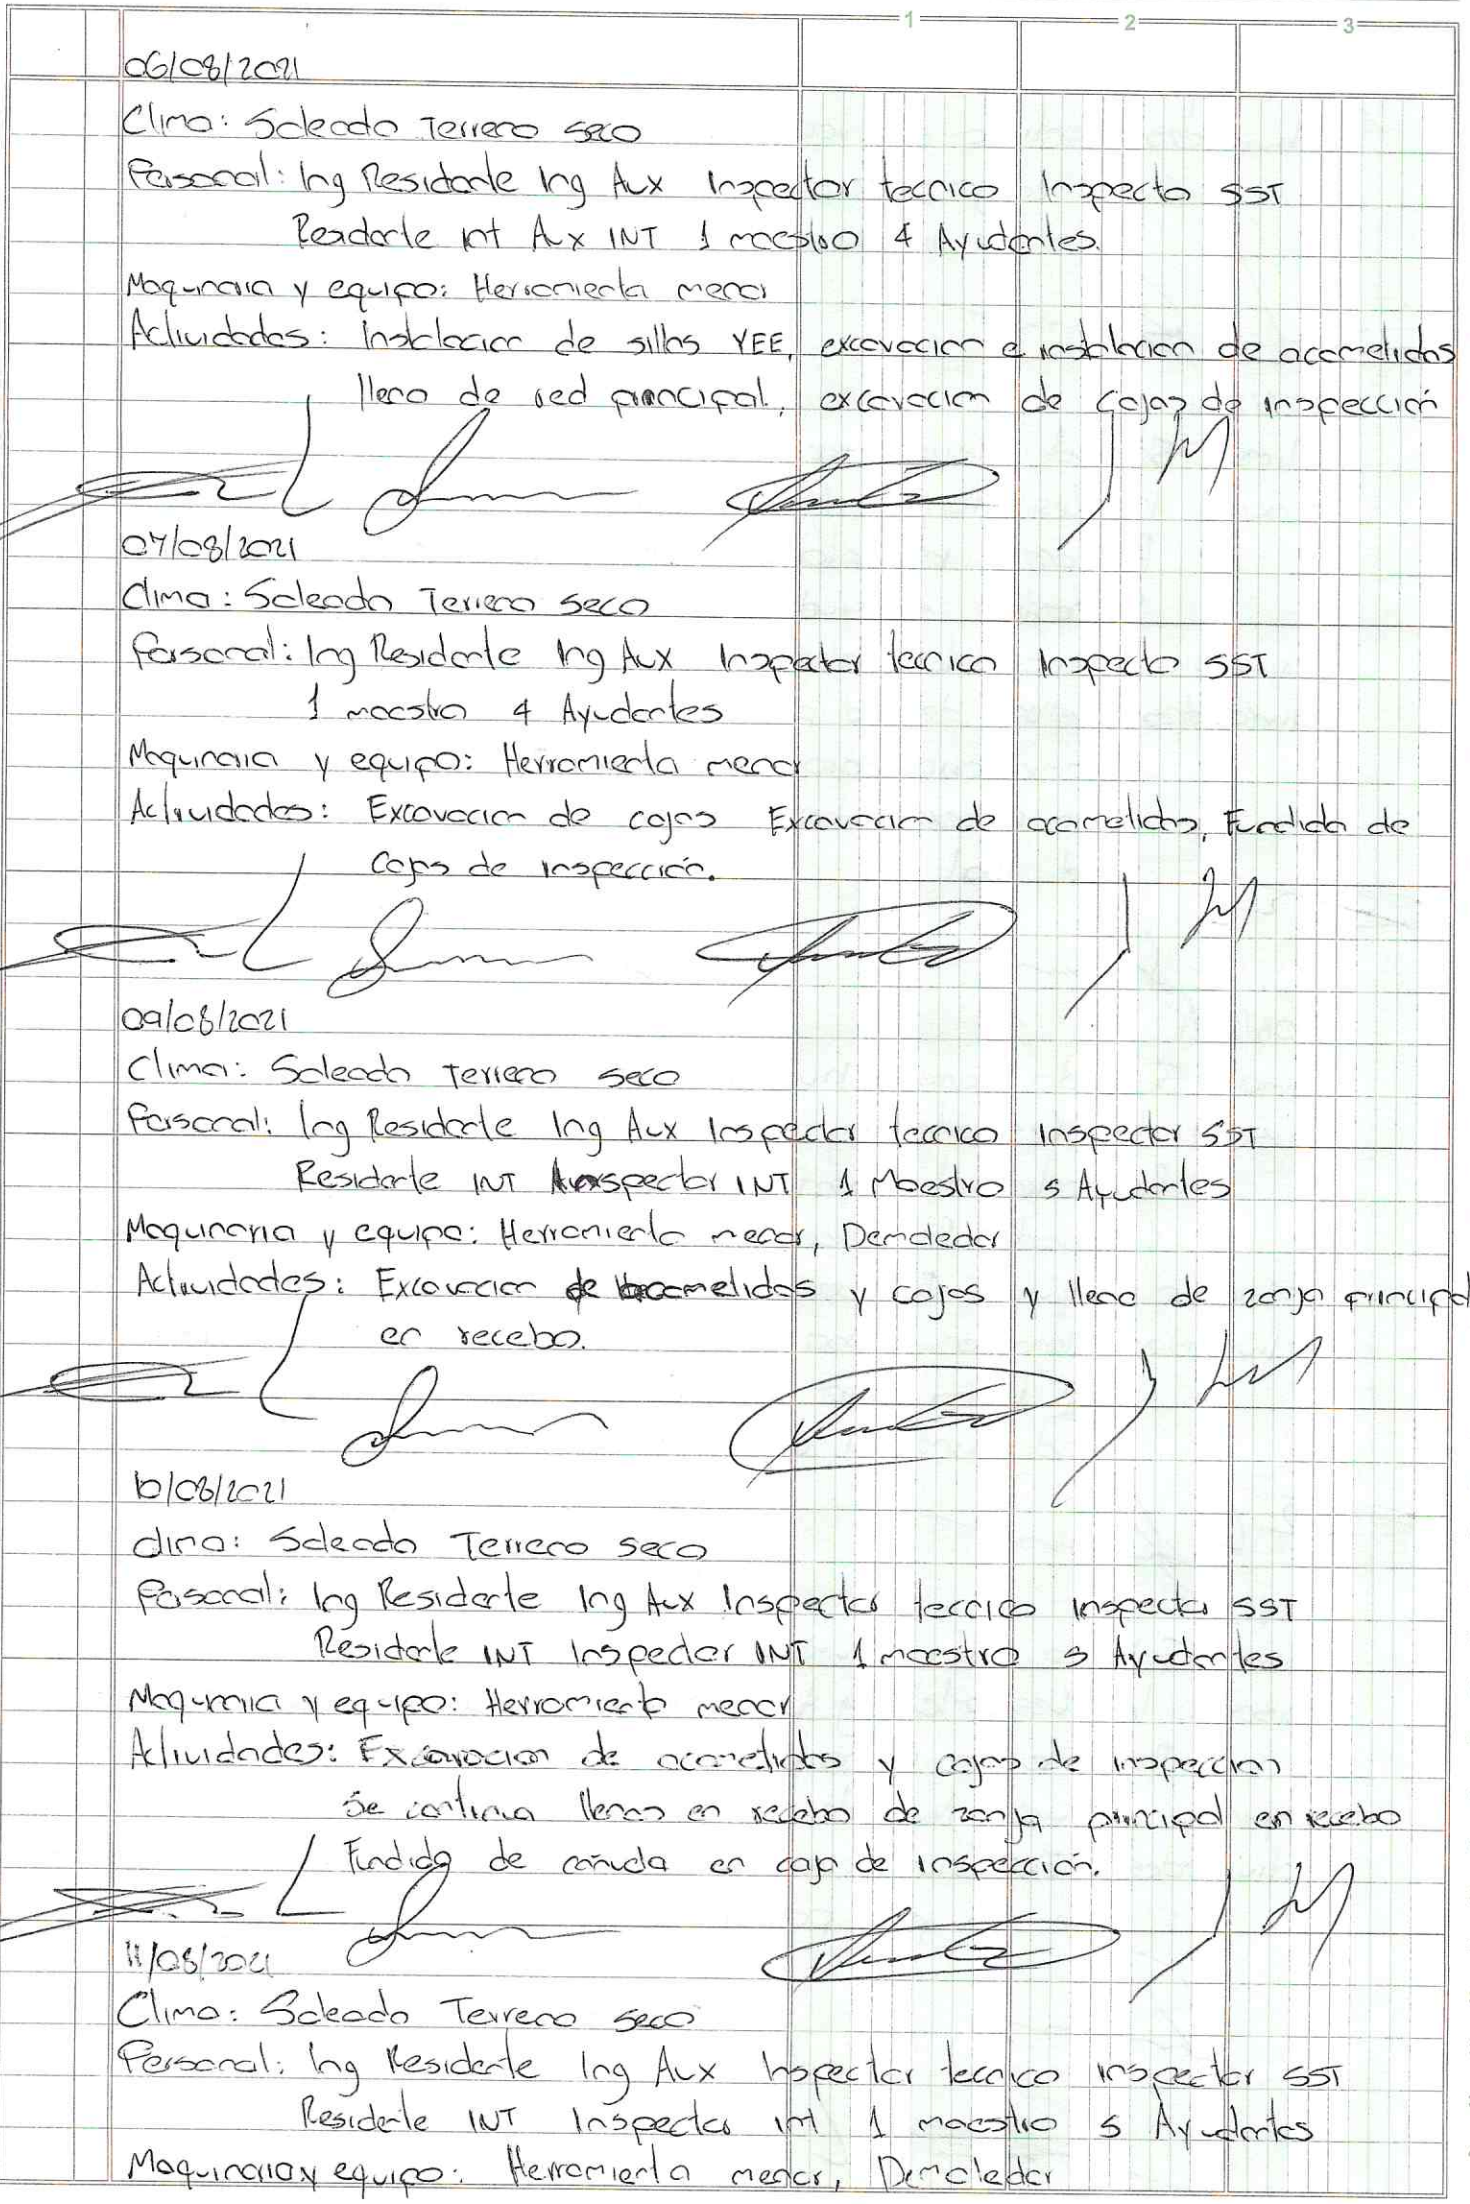 1 2 3
06/08/2021
Clima: Soleado Terreno seco
Personal: Ing Residente Ing Aux Inspector tecnico Inspecto SST
Residente int Aux INT 1 maestro 4 Ayudantes.
Maquinaria y equipo: Herramienta menor
Actividades: instalacion de sillas YEE, excavacion e instalacion de acometidas
lleno de red principal, excavacion de cajas de inspección
07/08/2021
Clima: Soleado Terreno seco
Personal: Ing Residente Ing Aux Inspector tecnico Inspecto SST
1 maestro 4 Ayudantes
Maquinaria y equipo: Herramienta menor
Actividades: Excavacion de cajas Excavacion de acometidas, Fundida de
Cajas de inspección.
09/08/2021
Clima: Soleado Terreno seco
Personal: Ing Residente Ing Aux Inspector tecnico Inspector SST
Residente INT Inspector INT 1 Maestro 5 Ayudantes
Maquinaria y equipo: Herramienta menor, Demoledor
Actividades: Excavacion de acometidas y cajas y lleno de zanja principal
en recebo.
10/08/2021
clima: Soleado Terreno seco
Personal: Ing Residente Ing Aux Inspector tecnico inspector SST
Residente INT Inspector INT 1 maestro 5 Ayudantes
Maquinaria y equipo: Herramienta menor
Actividades: Excavacion de acometidas y cajas de inspeccion
Se continua llenos en recebo de zanja principal en recebo
Fundida de cañuela en caja de inspección.
11/08/2021
Clima: Soleado Terreno seco
Personal: Ing Residente Ing Aux Inspector tecnico inspector SST
Residente INT Inspector int 1 maestro 5 Ayudantes
Maquinaria y equipo: Herramienta menor, Demoledor